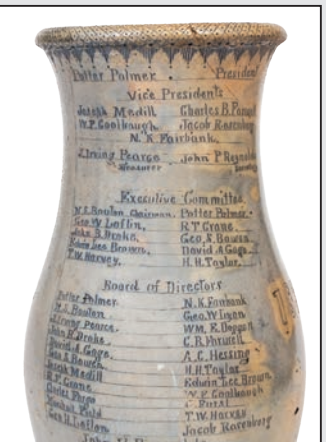 Potter Palmer. President
Vice Presidents
Joseph Medill Charles B. Farwell
W.F. Coolbaugh Jacob Rosenberg
N.K. Fairbank.
J. Irving Pearce John P Reynolds
Treasurer
Executive Committee
N.S. Bouton Chairman. Potter Palmer.
Geo W Laflin, R T Crane.
John B Drake, Geo. S. Bowen
Edwin Lee Brown, David A Gage
T.W. Harvey. H.H. Taylor.
Board of Directors
Potter Palmer N.K. Fairbank
N.S. Bouton Geo. W. Lyon
J. Irving Pearce. WM. R. Doggett
John B Drake C.B. Farwell
David A. Gage. A.C. Hessing
Geo S Bowen H.H Taylor
Joseph Medill Edwin Lee Brown
R.T. Crane W F Coolbaugh
Charles Fargo
Field T.W. Harvey
Geo W. Laflin Jacob Rosenberg
John